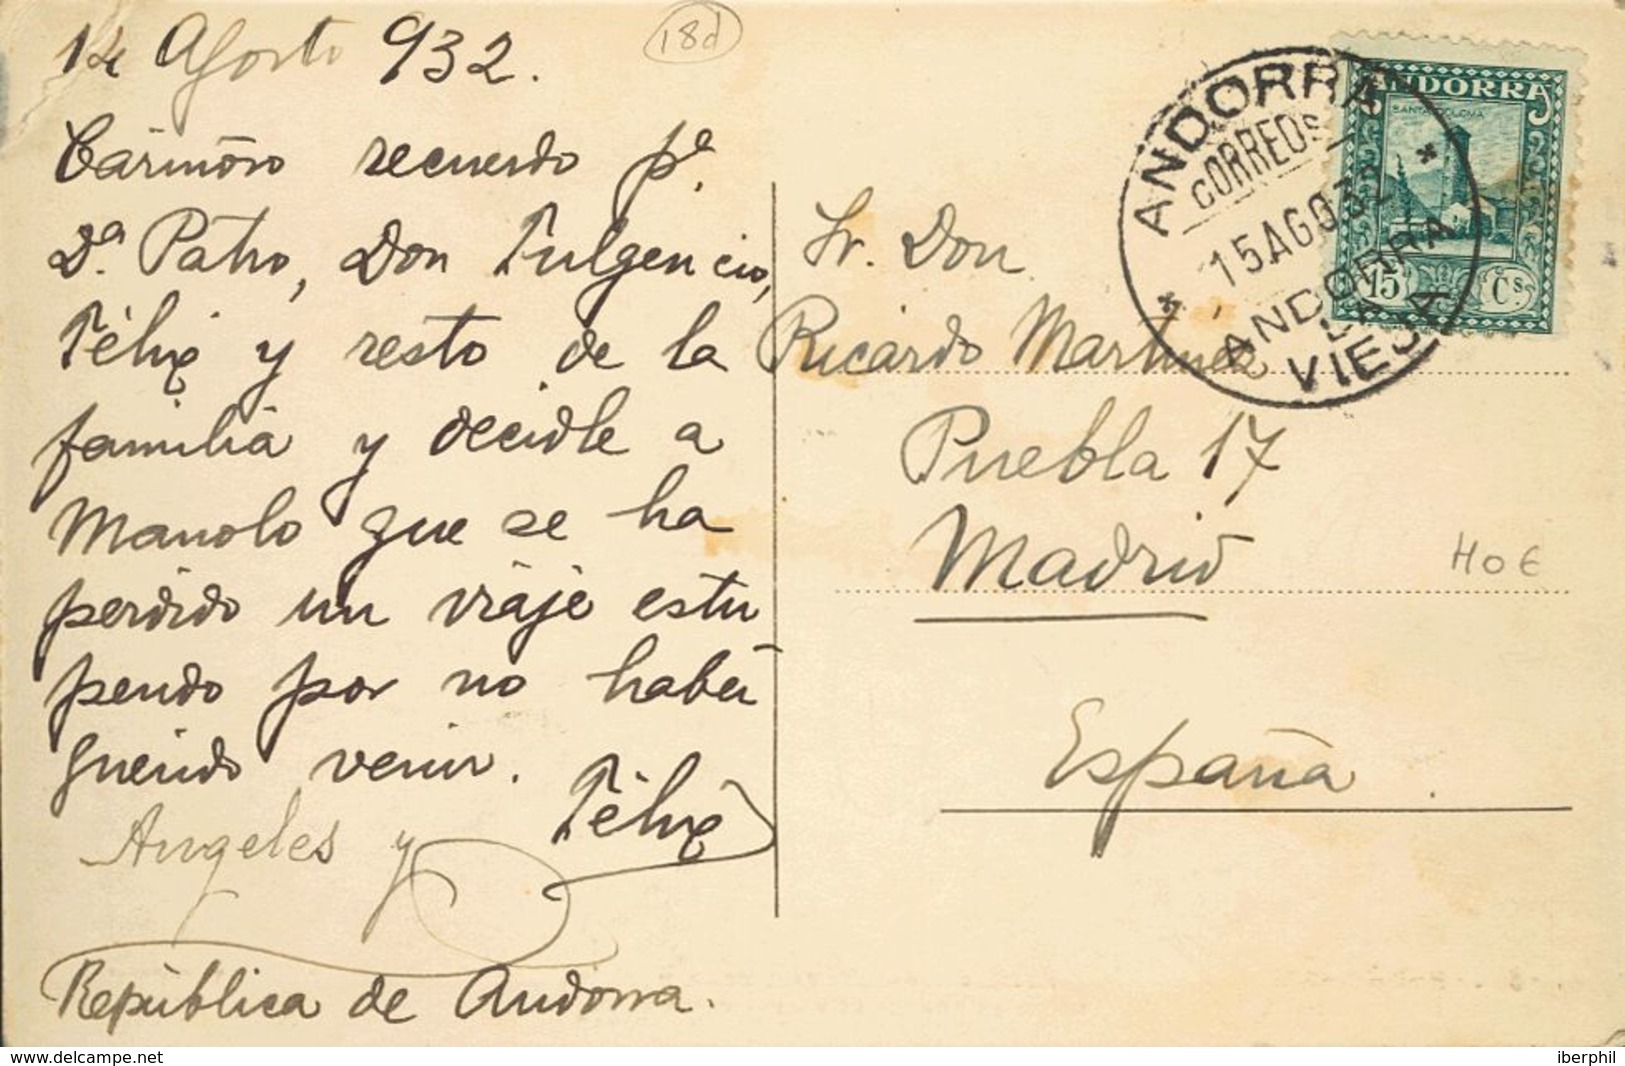 14 Agosto 932.
18d
Cariñoso recuerdo pª
Dª Patro, Don Fulgencio,
Félix y resto de la
familia y decidle a
Manolo que se ha
perdido un viaje estu
pendo por no haber
querido venir.
Félix
Angeles y
República de Andorra.
ANDORRA
CORREOS
15 AGO 32
ANDORRA
LA
VIEJA
ANDORRA
SANTA COLOMA
15 Cs
Sr. Don
Ricardo Martinez
Puebla 17
Madrid
España
40 €
www.delcampe.net
iberphil